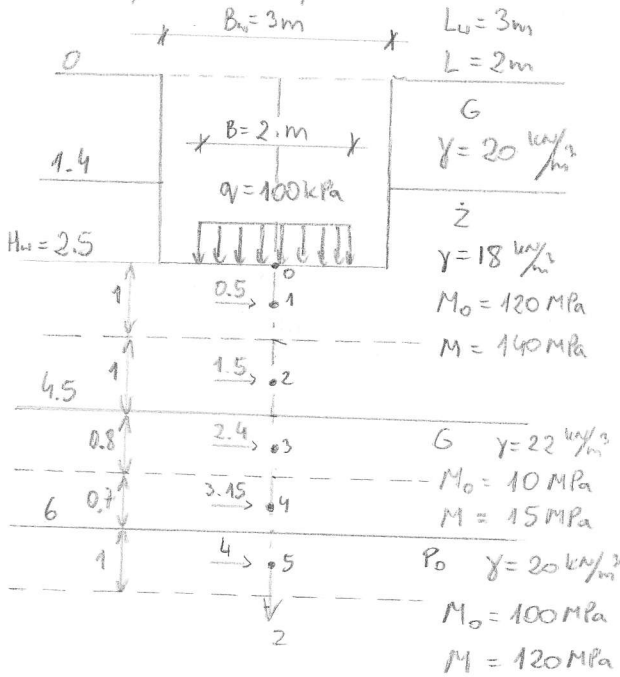 B_w = 3m
L_w = 3m
L = 2m
0
G
γ = 20 kN/m³
B = 2.m
1.4
q = 100kPa
Ż
γ = 18 kN/m³
H_w = 2.5
0
M₀ = 120 MPa
M = 140 MPa
1
0.5
1
1
1.5
2
4.5
0.8
2.4
3
G γ = 22 kN/m³
M₀ = 10 MPa
M = 15 MPa
0.7
3.15
4
6
1
4
5
P₀ γ = 20 kN/m³
M₀ = 100 MPa
M = 120 MPa
z